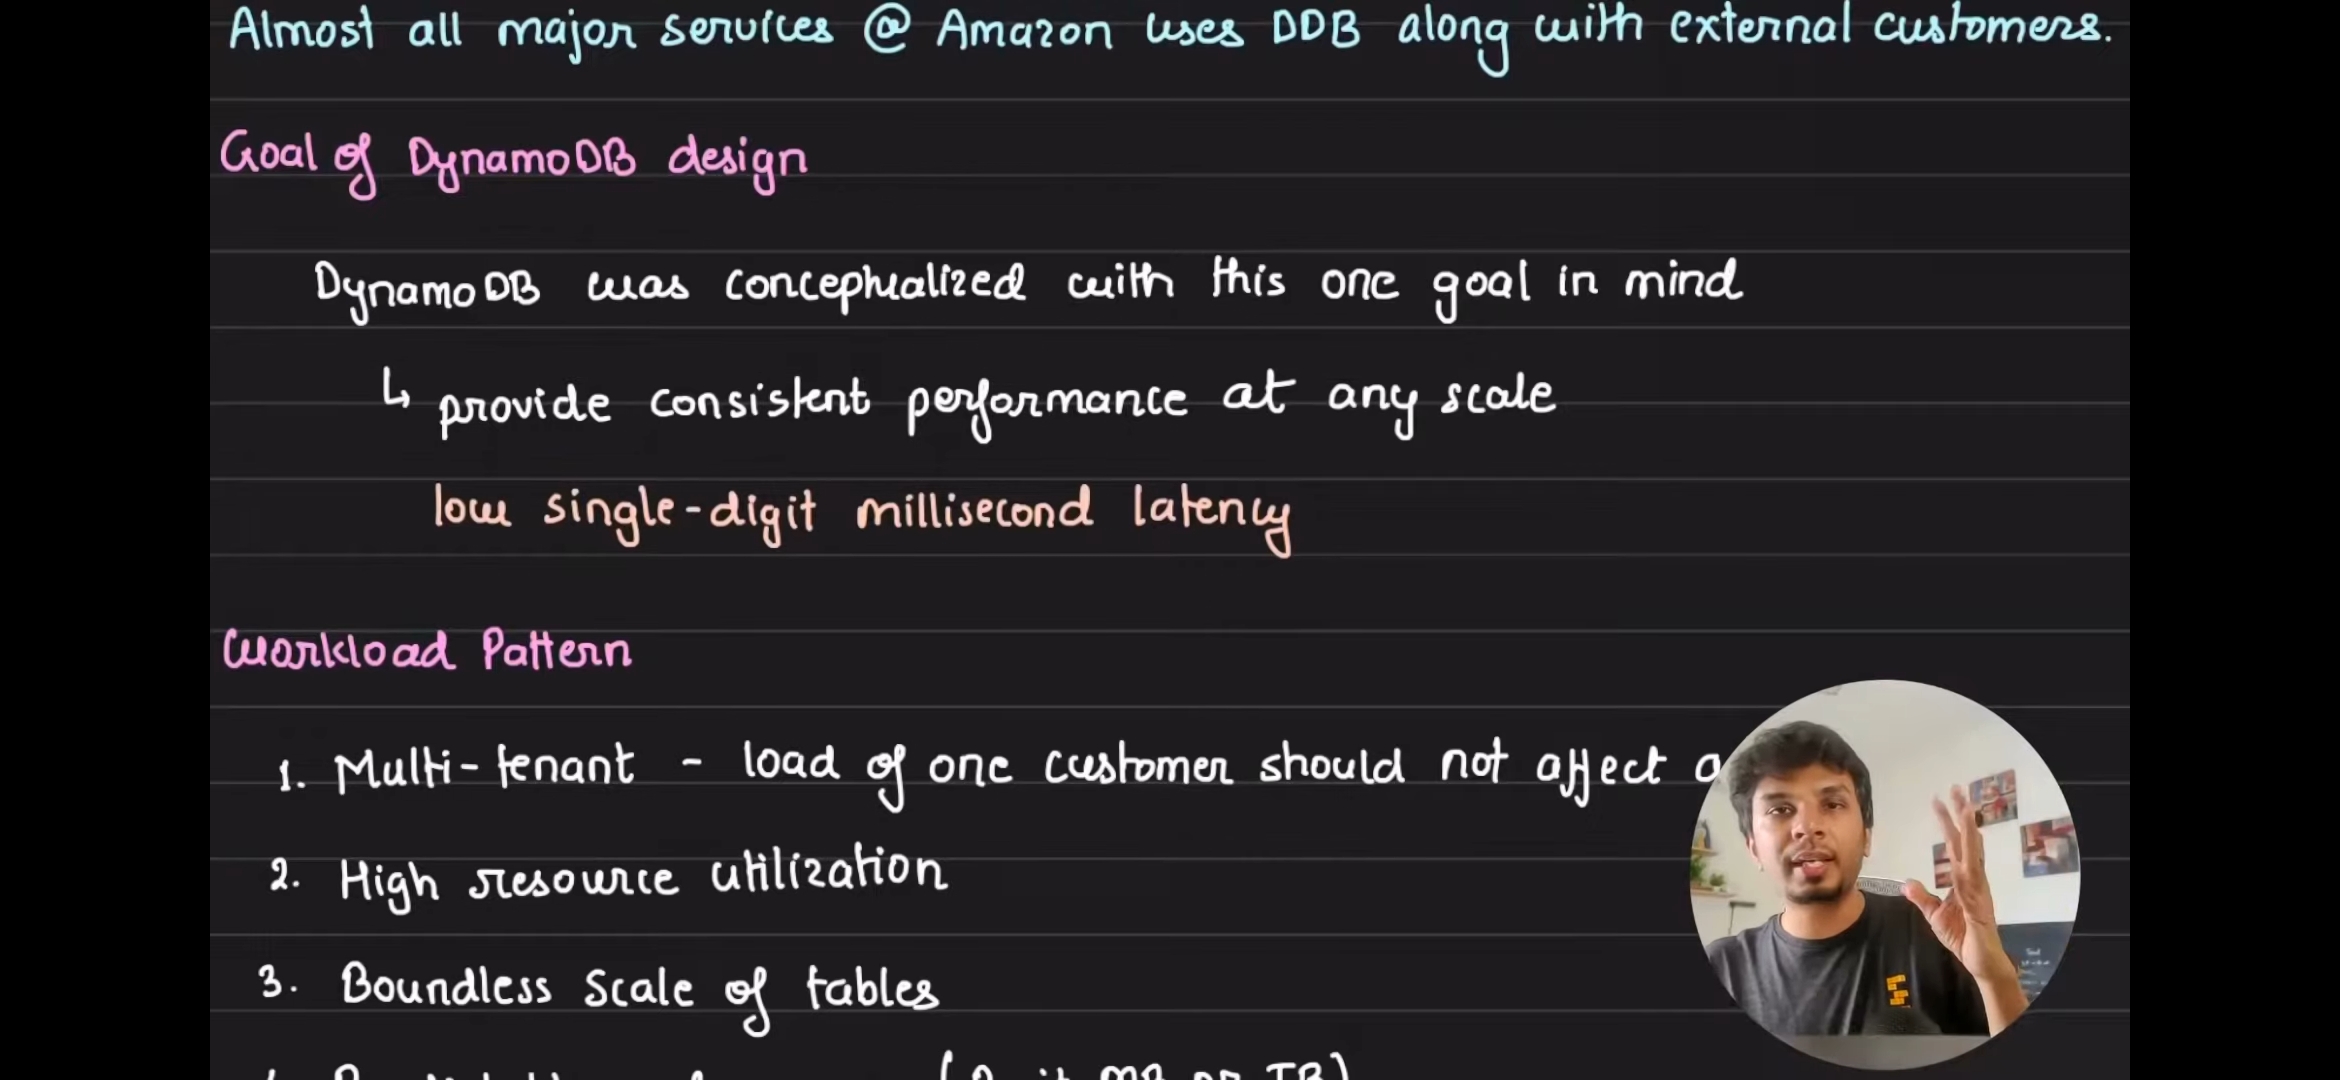 Almost all major services @ Amazon uses DDB along with external customers.
Goal of DynamoDB design
DynamoDB was conceptualized with this one goal in mind
↳ provide consistent performance at any scale
low single-digit millisecond latency
Workload Pattern
1. Multi-tenant - load of one customer should not affect a
2. High resource utilization
3. Boundless scale of tables